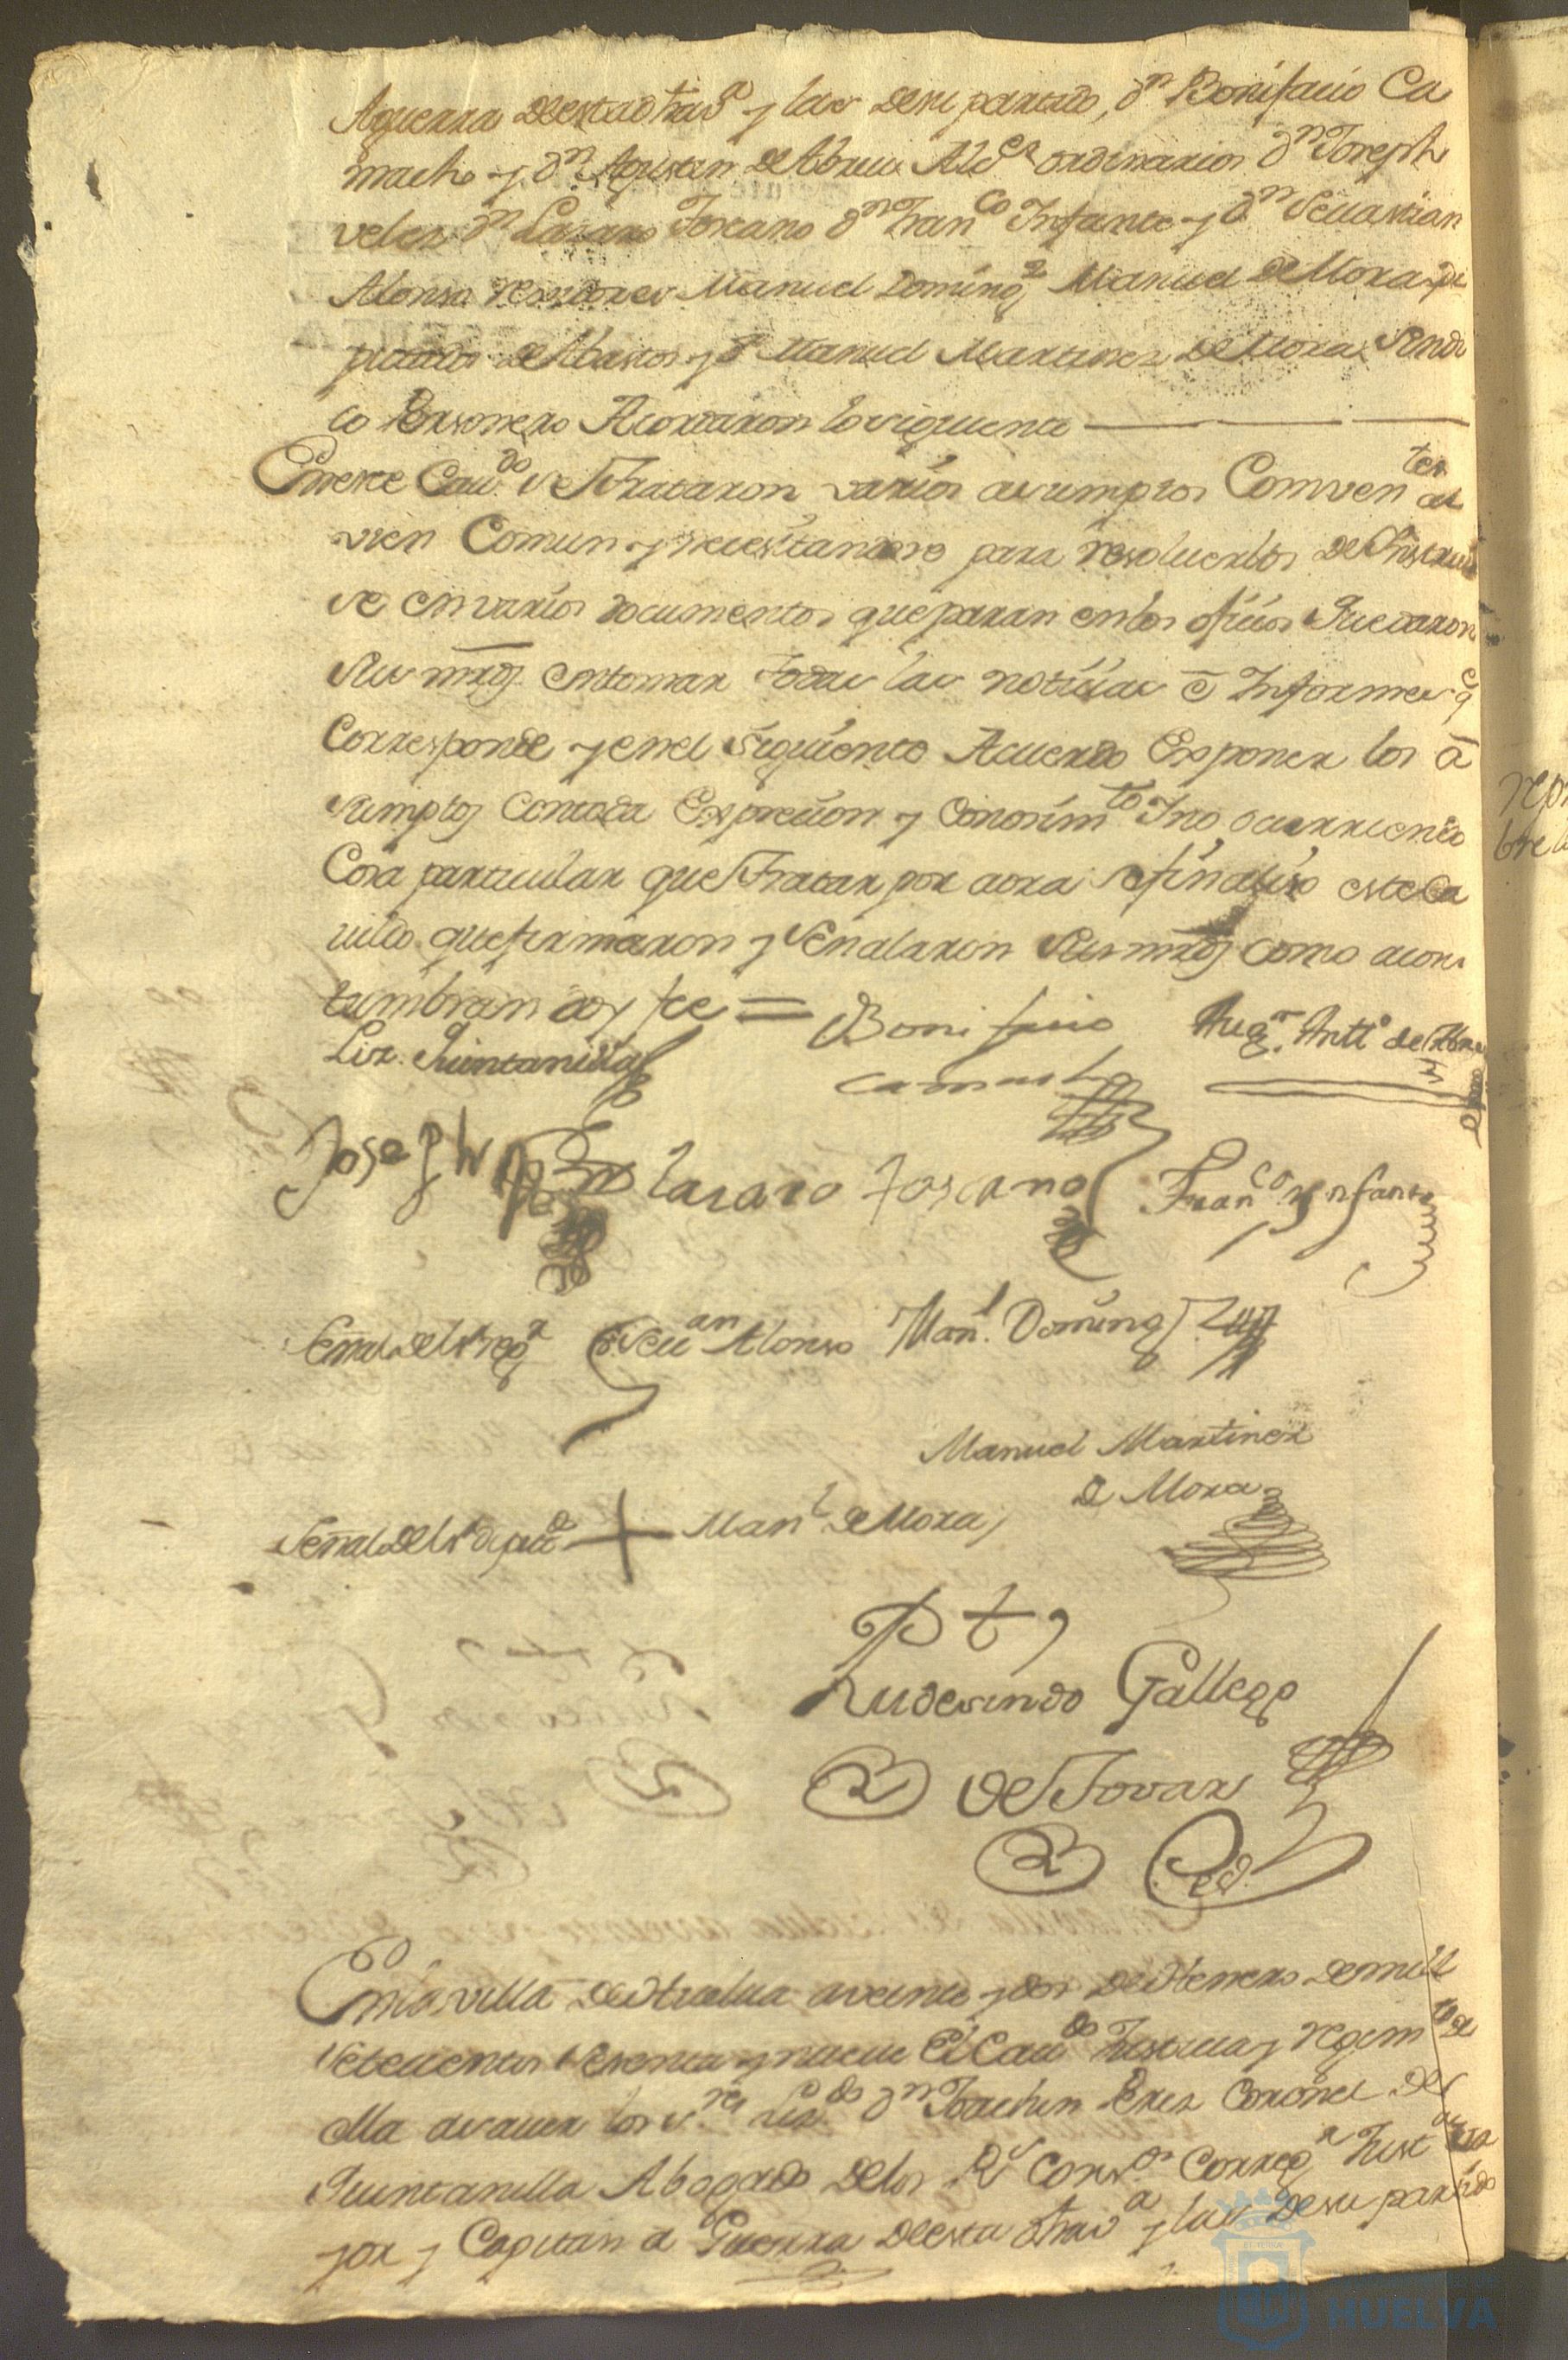 Aguerra de esta dha va y las de su partido, dn Bonifacio Ca
macho y dn Agustan de Abreu Aldes ordinarios dn Joseph
velez dn Lazaro Toscano dn Franco Infante y dn Sevastian
Alonso rexidores Manuel Domingz Manuel de Mora di
putados de Abastos y dn Manuel Martinez de Mora Sindi
co Personero Acordaron lo siguiente
En este Cavdo se trataron varios asumptos Convenites al
vien Comun y necesitandose para resolverlos de Instruir
se en varios documentos que paran en los ofiios Quedaron
sus mrds en tomar todas las notiias e Informes q
Corresponde y en el siguiente Acuerdo Exponer los a
sumptos con toda Expreion y Conosimto Y no ocurriendo
Cosa particular que tratar por aora se finaliso este Ca
vildo que firmaron y señalaron sus mrds como acos
tumbran doy fee =
Liz. Quintanilla
Bonifacio
camacho
Augn. Antto de Abreu
Joseph
Lazaro Toscano
Franco Ynfante
Señal del sr regr
Sevan Alonso
Manl. Domingz
Manuel Martinez
de Mora
Señal del sr diputdo + Manl de Mora
Rudesindo Gallego
de Tovar
En la villa de Huelva a veinte y dos de Henero de mill
setecientos sesenta y nueve El Cavdo Justicia y regimto de
ella a saver los sres Lizdo dn Joachin Perez Coronel de
Quintanilla Abogado de los Rs Consos Corregr Justa ma
yor y Capitan a Guerra de esta dha va y las de su partido
repr
bre l
HUELVA